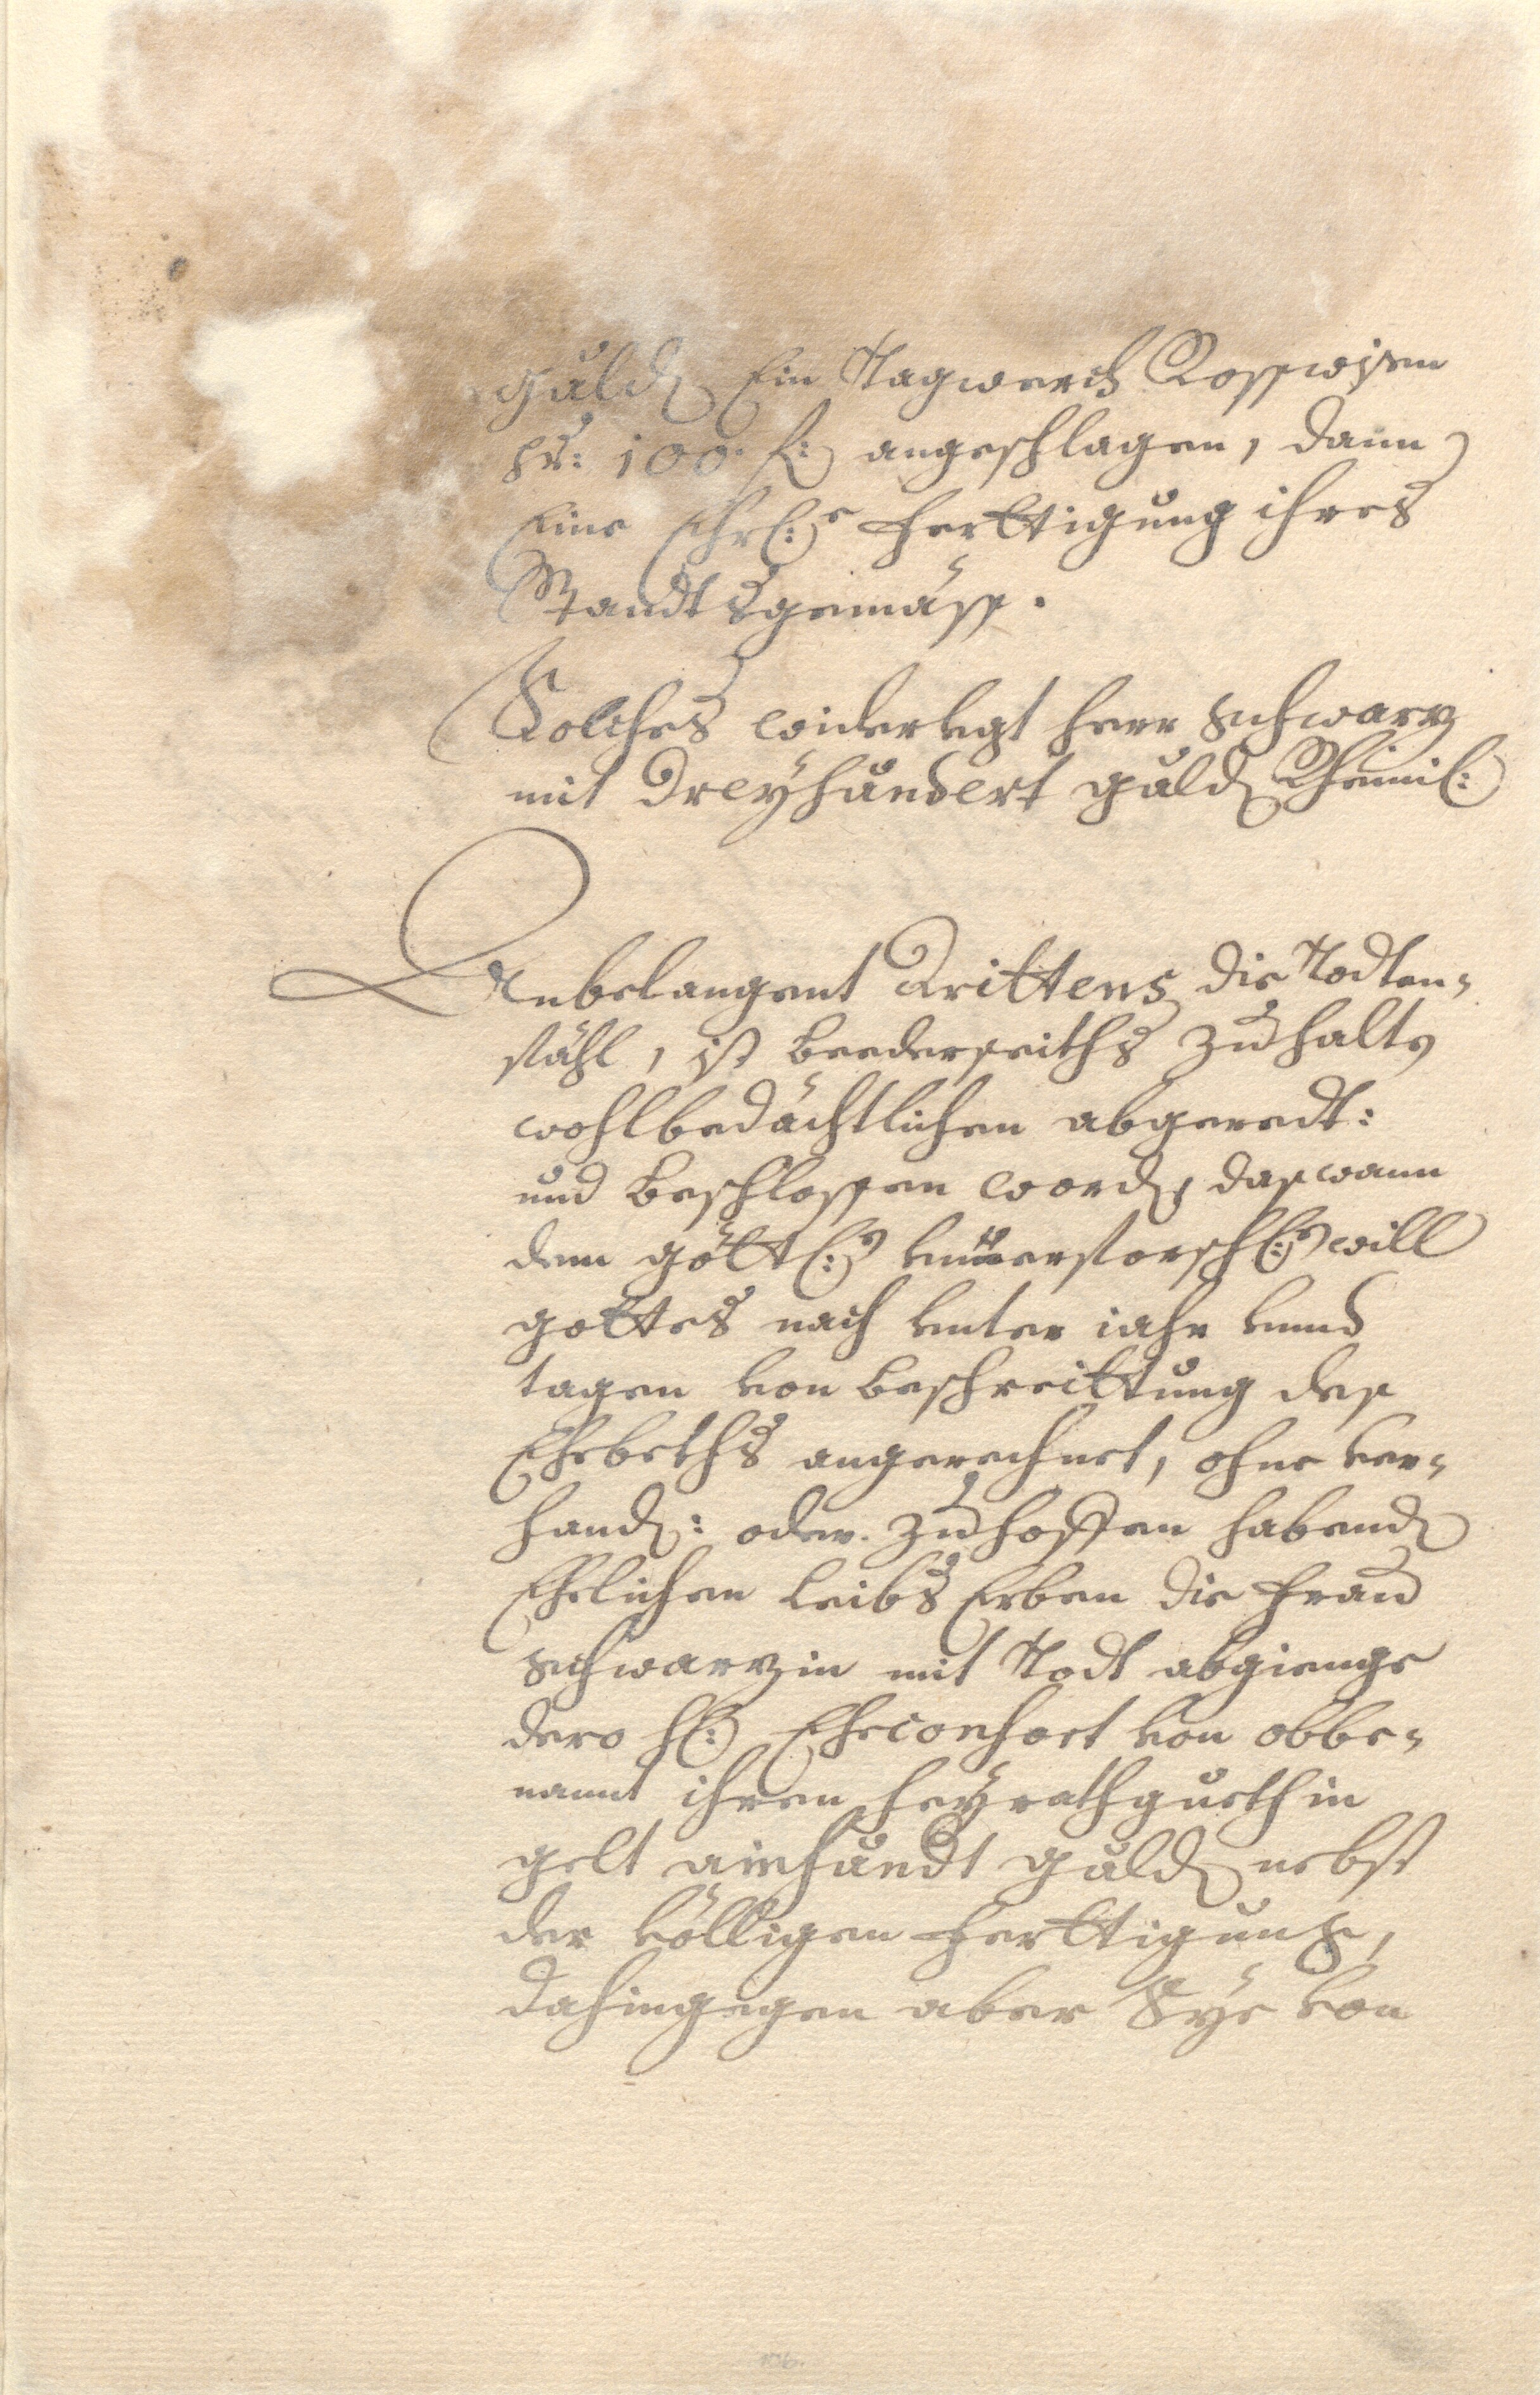 guld. Ein Tagwerch Rosswisen
pr: 100. f: angeschlagen, dann
Eine Ehrl:e Ferttigung ihres
Standtsgemäss.
Solches widerlegt Herr Schwarz
mit Dreyhundert guld. Rheinil:
Anbelangent Drittens die Todten-
fähl, ist beederseiths zuhalts
wohlbedächtlichen abgeredt:
und beschlossen word, das wann
dem göttl: unerforschl: will
gottes nach unter iahr unnd
tagen von beschreittung des
Ehebeths angerechnet, ohne ver-
hand: oder zuhoffen habend
Ehelichen Leibs Erben die Frau
Schwarzin mit Todt abgienge
dero H: Eheconsort von obbe-
nannt ihren Heyrathgueth in
gelt ainhundt guld nebst
der völligen Ferttigung,
dahingegen aber Sye von